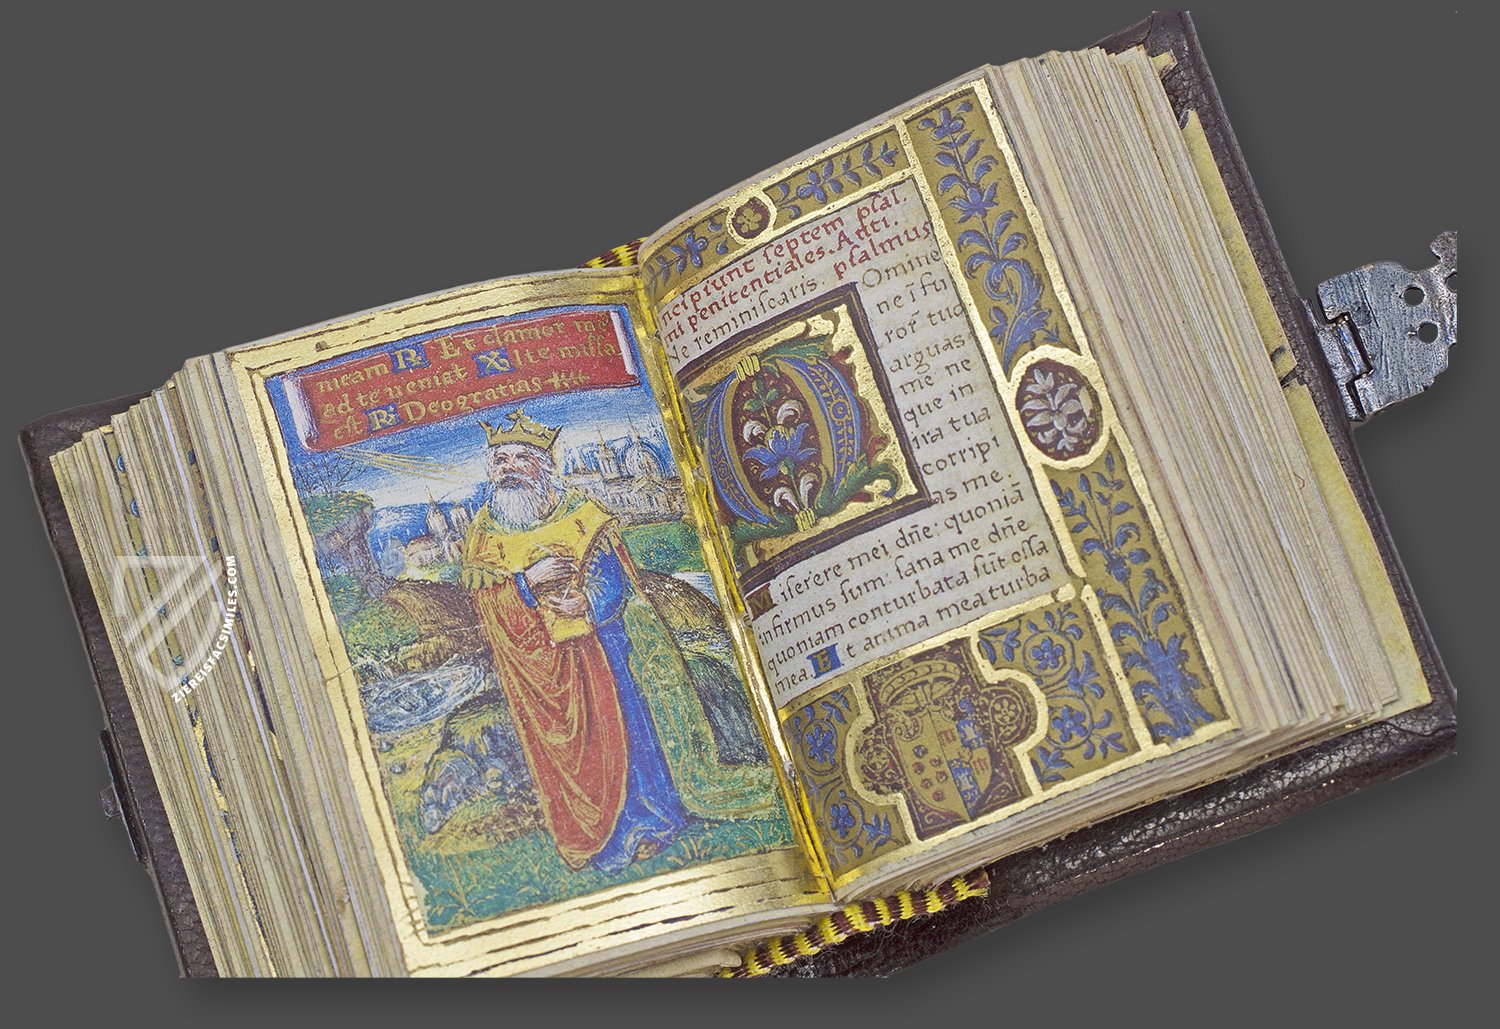 meam R. Et clamor me
ad te veniat Xp̄i te missa
est R. Deo gratias
ncipiunt septem psal.
mi penitentiales. Anti.
Ne reminiscaris. psalmus
Omine
ne ī fu
rore tuo
arguas
me ne
que in
ira tua
corripi
as me.
Miserere mei dn̄e: quoniā
infirmus sum: sana me dn̄e
quoniam conturbata sūt ossa
mea Et anima mea turba
ZIEREISFACSIMILES.COM